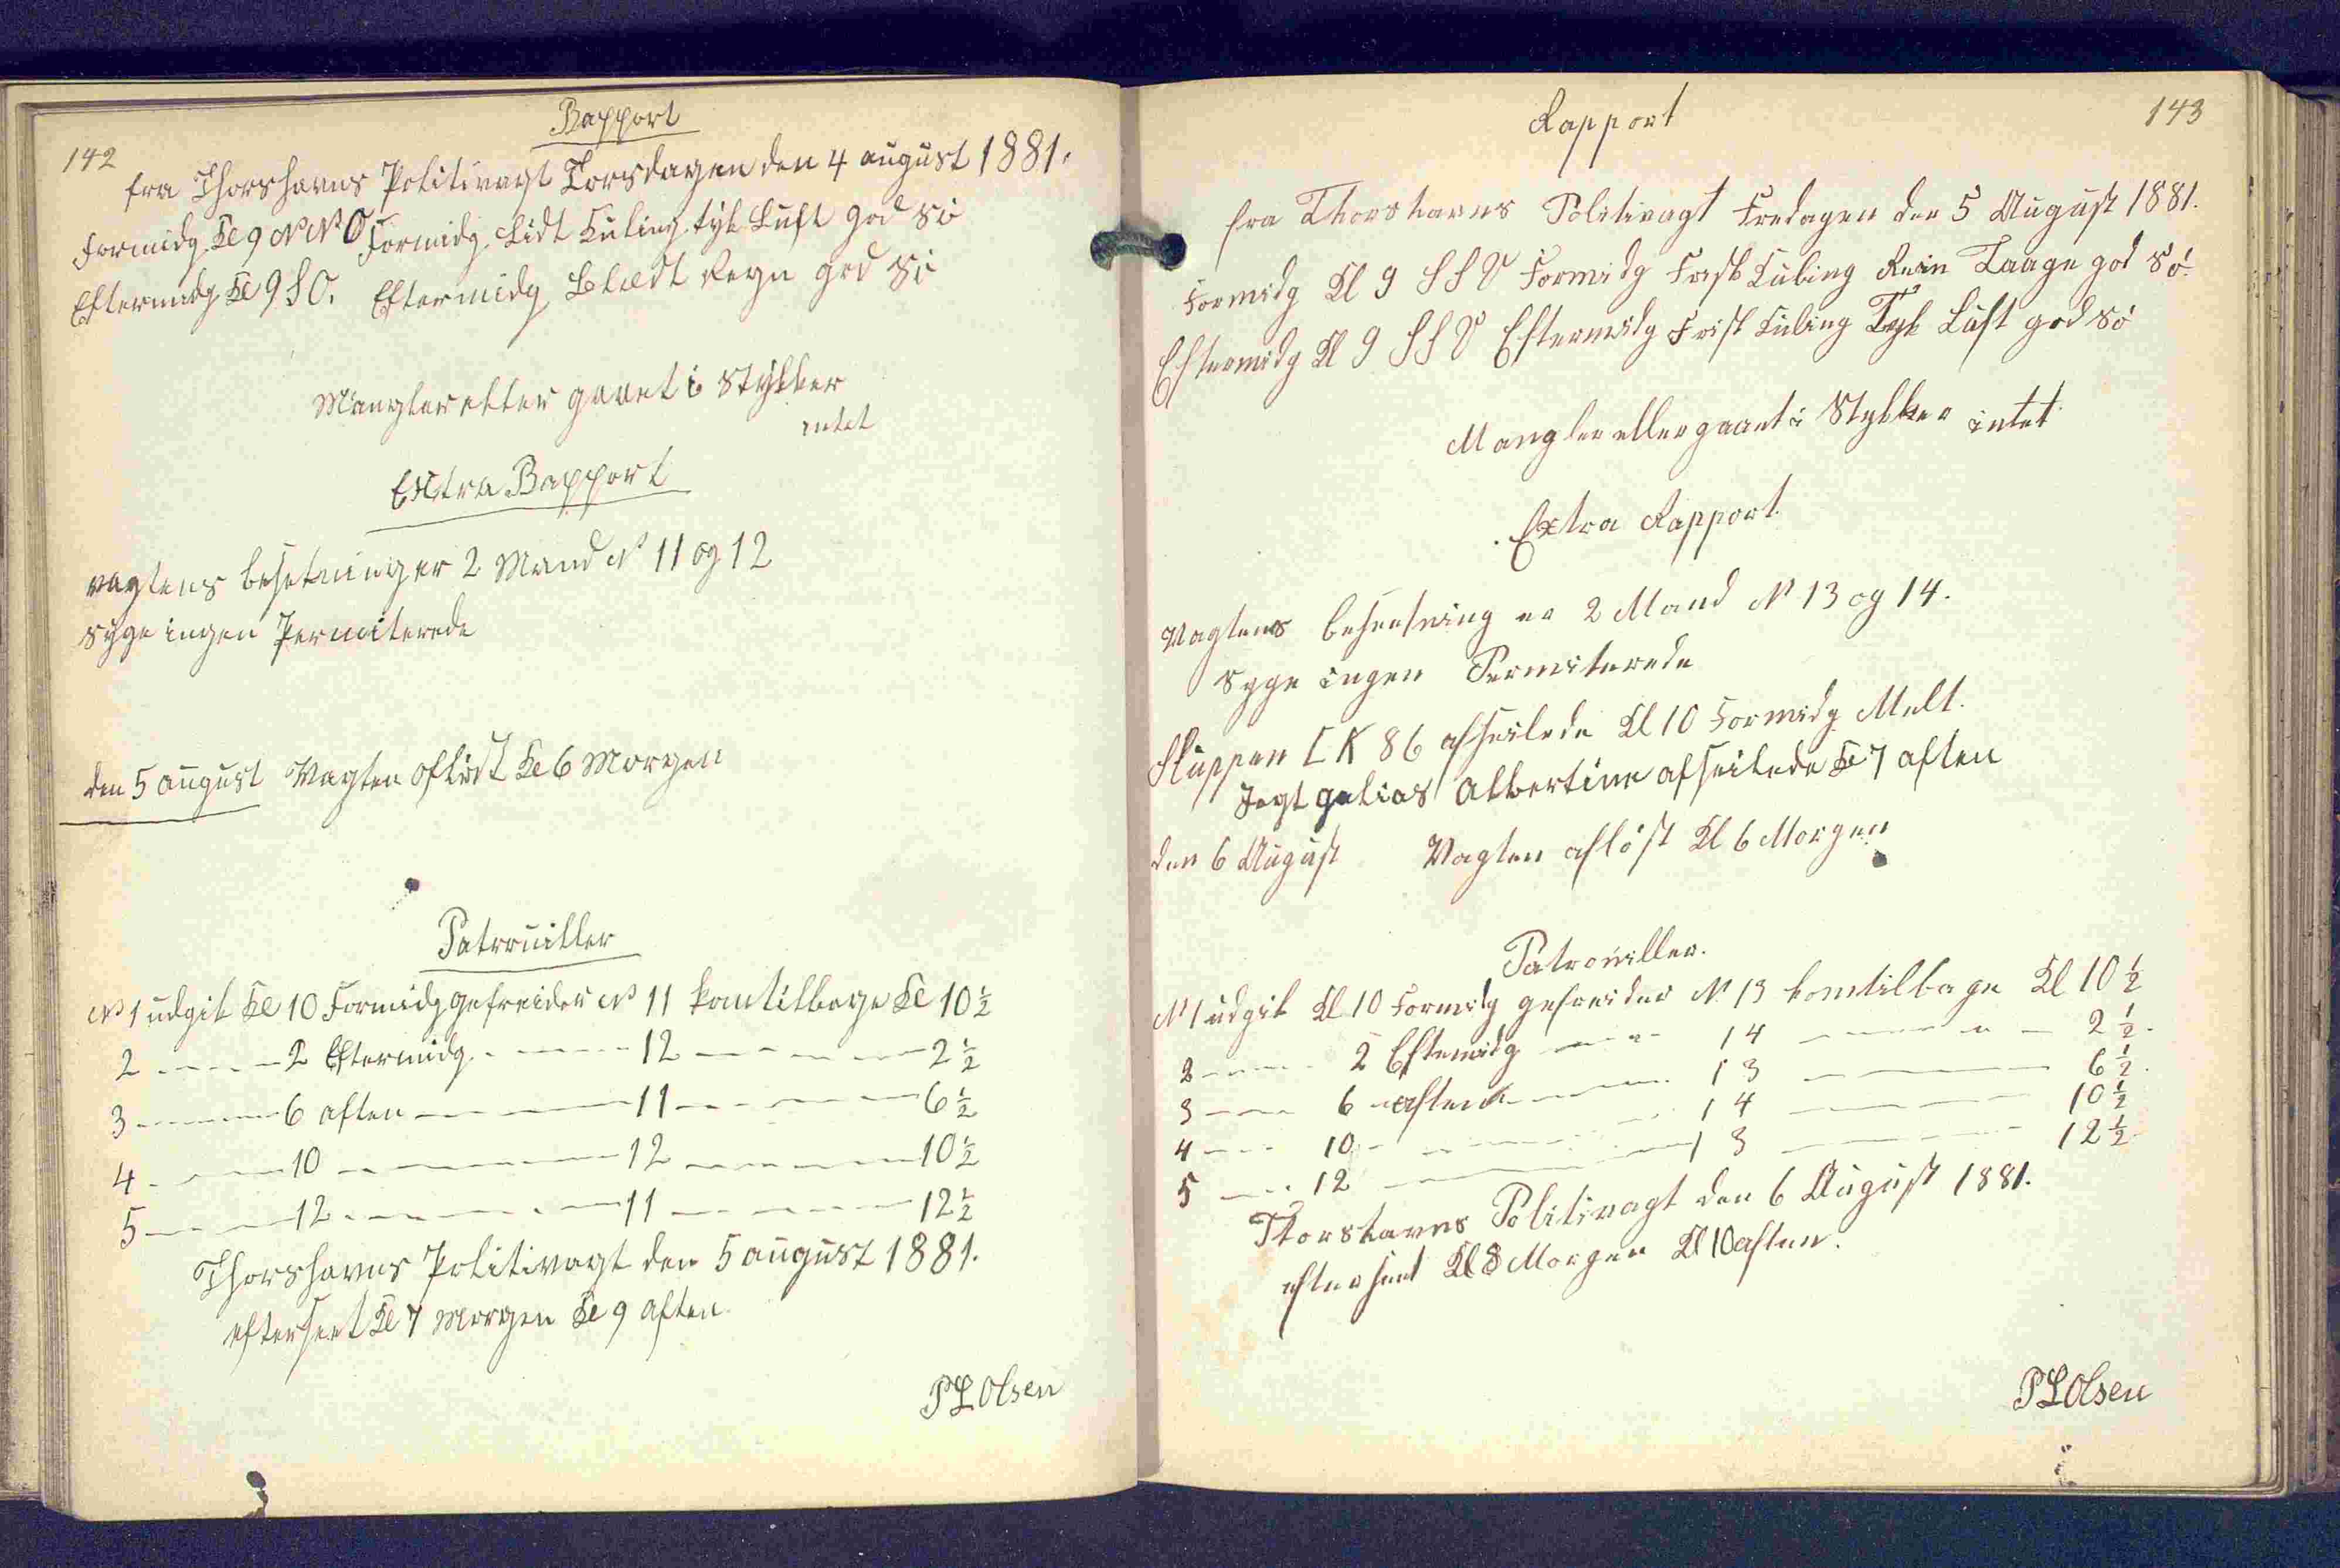 142
Rapport
fra Thorshavns Politivagt Torsdagen den 4 august 1881.
Formidg Kl 9 N N O Formidg Lidt Kuling tyk Luft god Sö
Eftermidg Kl 9 S O. Eftermidg Blædt Regn god Sö
Mangler eller gaaet i Stykker
intet
Extra Rapport
vagtens besetning er 2 Mand No 11 og 12
syge ingen Permiterede
den 5 august Vagten aflöst Kl 6 Morgen
Patrouiller
No 1 udgik Kl 10 Formidg gefreider No 11 komtilbage Kl 10 1/2
2 — 2 Eftermidg — 12 — 2 1/2
3 — 6 aften — 11 — 6 1/2
4 — 10 — 12 — 10 1/2
5 — 12 — 11 — 12 1/2
Thorshavns Politivagt den 5 august 1881.
efterseet Kl 7 Morgen Kl 9 aften
P L Olsen
143
Rapport
fra Thorshavns Politivagt Fredagen den 5 August 1881.
Formidg Kl 9 S S V Formidg Frisk Kuling Taage god Sö.
Eftermidg Kl 9 S S V Eftermidg Frisk Kuling Tyk Luft god Sö
Mangler eller gaaet i Stykker intet
Extra Rapport.
Vagtens beseetning er 2 Mand No 13 og 14.
Syge ingen Permiterede
Sluppen L K 86 afseilede Kl 10 Formidg Melt.
Jagt galias Albertine afseilede Kl 7 aften
den 6 August Vagten aflöst Kl 6 Morgen
Patrouiller.
No 1 udgik Kl 10 Formidg gefreider No 13 komtilbage Kl 10 1/2
2 — 2 Eftemidg — 14 — 2 1/2.
3 — 6 aften — 13 — 6 1/2.
4 — 10 — 14 — 10 1/2
5 — 12 — 13 — 12 1/2
Thorshavns Politivagt den 6 August 1881.
efterseet Kl 8 Morgen Kl 10 aften.
P L Olsen